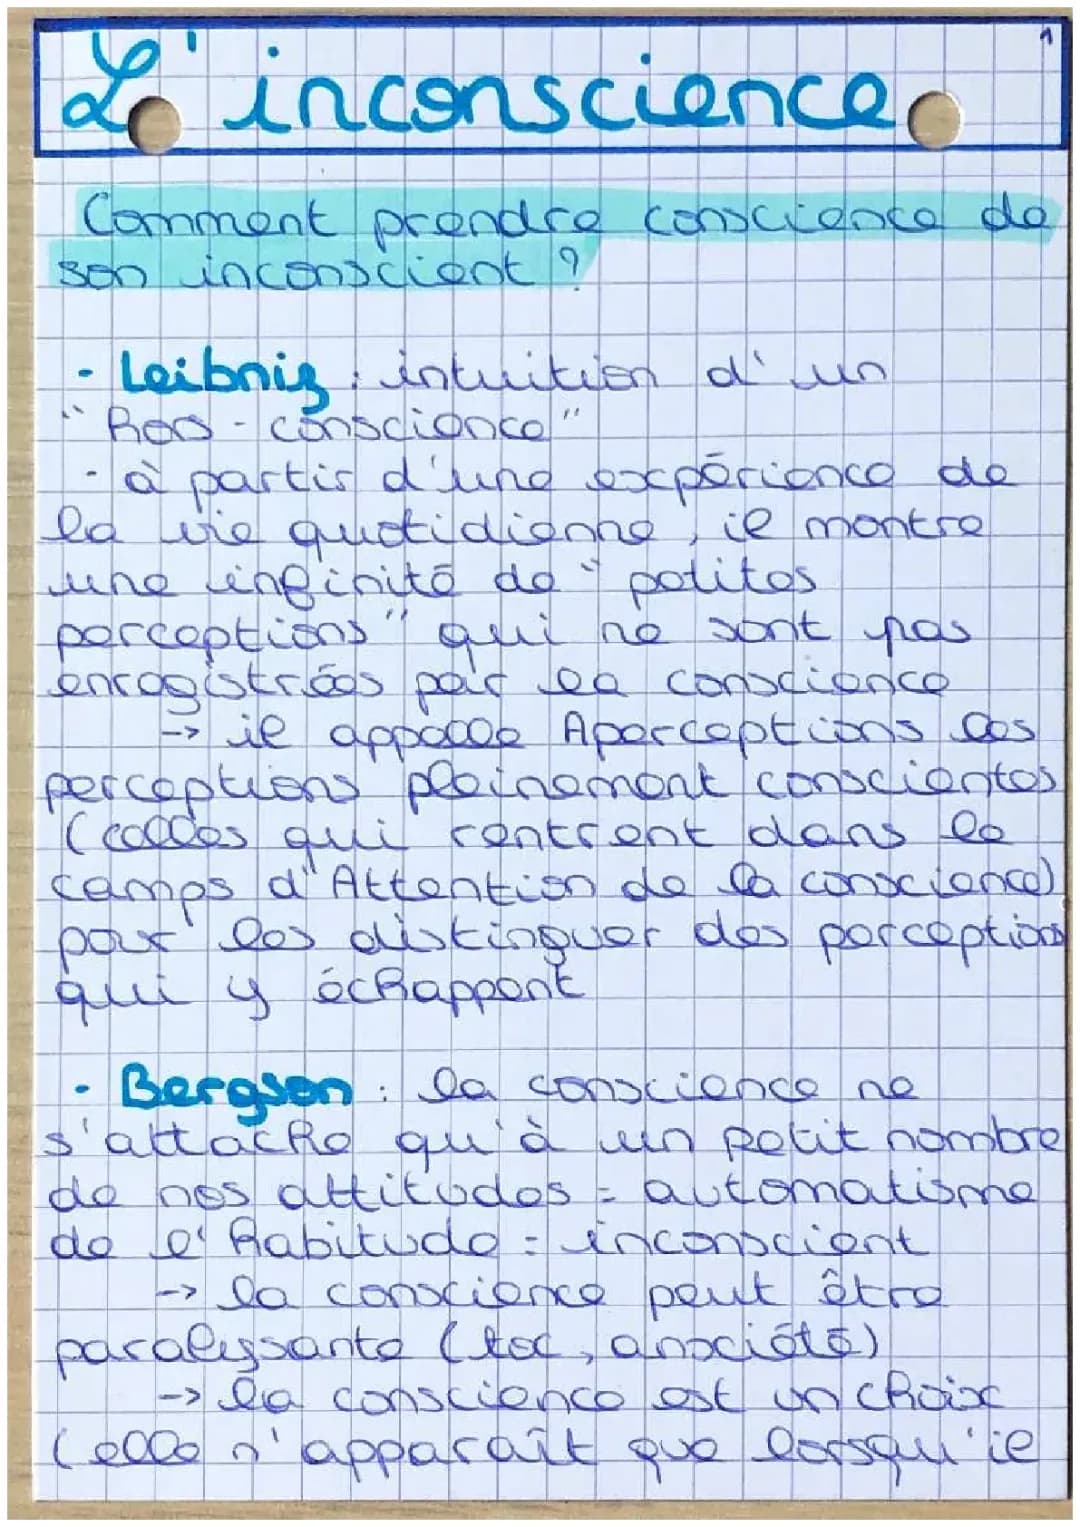 1
L'inconscience
Comment prendre conscience de
son inconscient ?
- Leibniz : intuition d'un
"hors-conscience"
- à partir d'une expérience de
la vie quotidienne, il montre
une infinité de "petites
perceptions" qui ne sont pas
enregistrées par la conscience
-> il appelle Aperceptions les
perceptions pleinement conscientes
(celles qui rentrent dans le
camps d'Attention de la conscience)
pour les distinguer des perceptions
qui y échappent
- Bergson : la conscience ne
s'attache qu'à un petit nombre
de nos attitudes = automatisme
de l'habitude = inconscient
-> la conscience peut être
paralysante (toc, anxiété)
-> la conscience est un choix
(elle n'apparaît que lorsqu'il